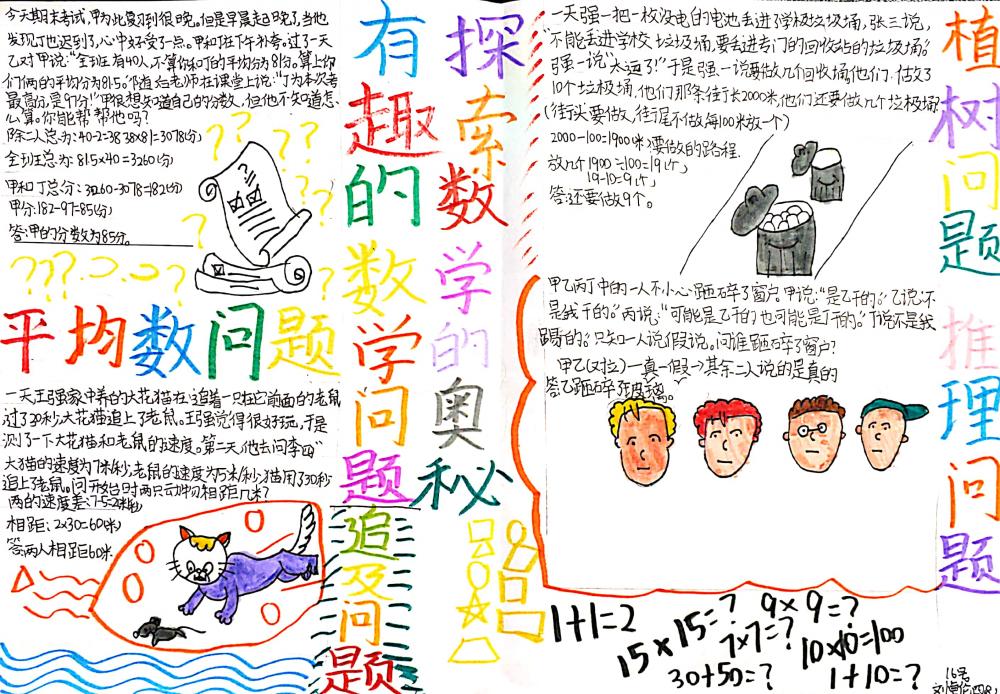 今天期末考试,甲为此复习到很晚。但是早晨起晚了,当他
发现丁也迟到了,心中好受了一点。甲和丁在下午补考。过了一天
乙对甲说:“全班有40人,不算你和丁的平均分为81分。算上你
们俩的平均分为81.5。”
最高分是97分!”甲很想知道自己的分数,但他不知道怎
么算。你能帮帮他吗?
除二人总分:40-2=38 38×81=3078(分)
全班总分:81.5×40=3260(分)
甲和丁总分:3260-3078=182(分)
甲分:182-97=85(分)
答:甲的分数为85分。
平均数问题
一天王强家中养的大花猫在追着一只在它前面的老鼠
过了30秒,大花猫追上了老鼠。王强觉得很好玩。于是
测了一下大花猫和老鼠的速度。第二天,他去问李四“
大猫的速度为7米/秒,老鼠的速度为5米/秒,猫用了30秒
追上老鼠。问开始时两只动物相距几米?
两的速度差:7-5=2(米/秒)
相距:2×30=60(米)
答:两人相距60米。
有趣的数学问题
追及问题
探索数学的奥秘
一天强一把一枚没电的电池丢进了学校垃圾场,张三说,
“不能丢进学校垃圾场,要丢进专门的回收站的垃圾场。”
强一说“太远了!”于是强一说要做几个回收场,他们估改了
10个垃圾场,他们那条街长2000米,他们还要做几个垃圾场?
(街头要做,街尾不做每100米放一个)
2000-100=1900(米)要做的路程.
放几个1900÷100=19(个)
19-10=9(个)
答:还要做9个。
植树问题
甲乙丙丁中的一人不小心踢碎了窗户。甲说:“是乙干的。”乙说:“不
是我干的。”丙说:“可能是乙干的也可能是丁干的。”丁说不是我
踢的。只知一人说假说。问谁踢碎了窗户?
甲乙(对立)一真一假→其余二人说的是真的
答乙踢碎了玻璃。
推理问题
1+1=2
15×15=?
9×9=?
7×7=?
10×10=100
30+50=?
1+10=?
16号